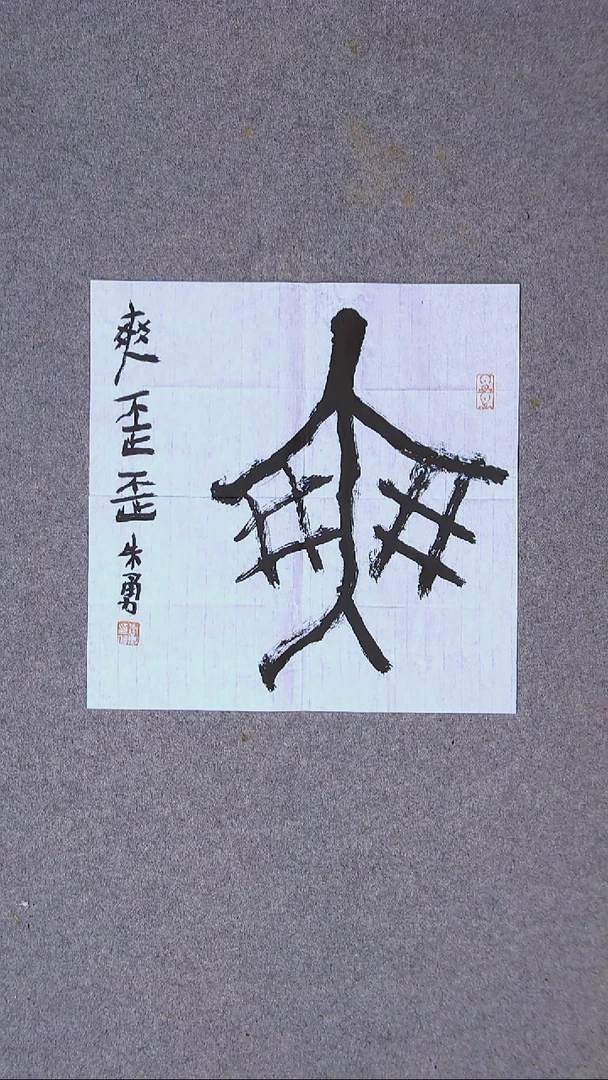 爽
爽歪歪朱勇